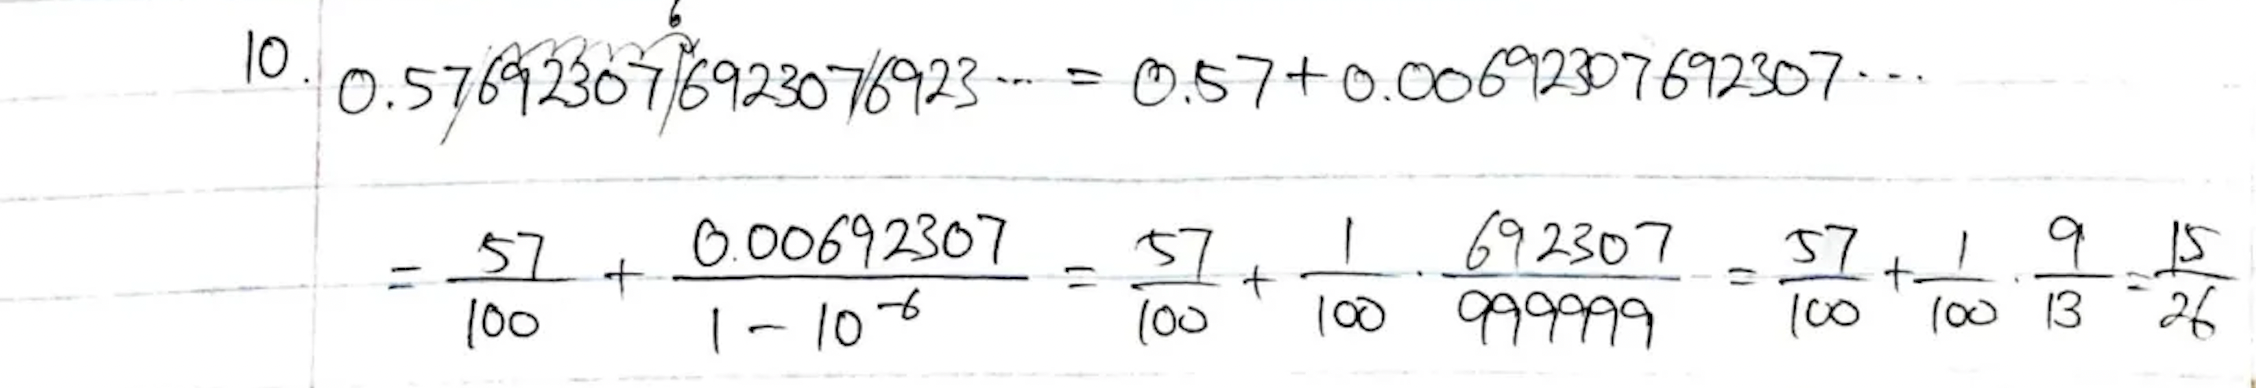 10. 0.57/692307/692307/6923... = 0.57+0.00692307692307...
6
= 57/100 + 0.00692307/(1-10^-6) = 57/100 + 1/100 · 692307/999999 = 57/100 + 1/100 · 9/13 = 15/26